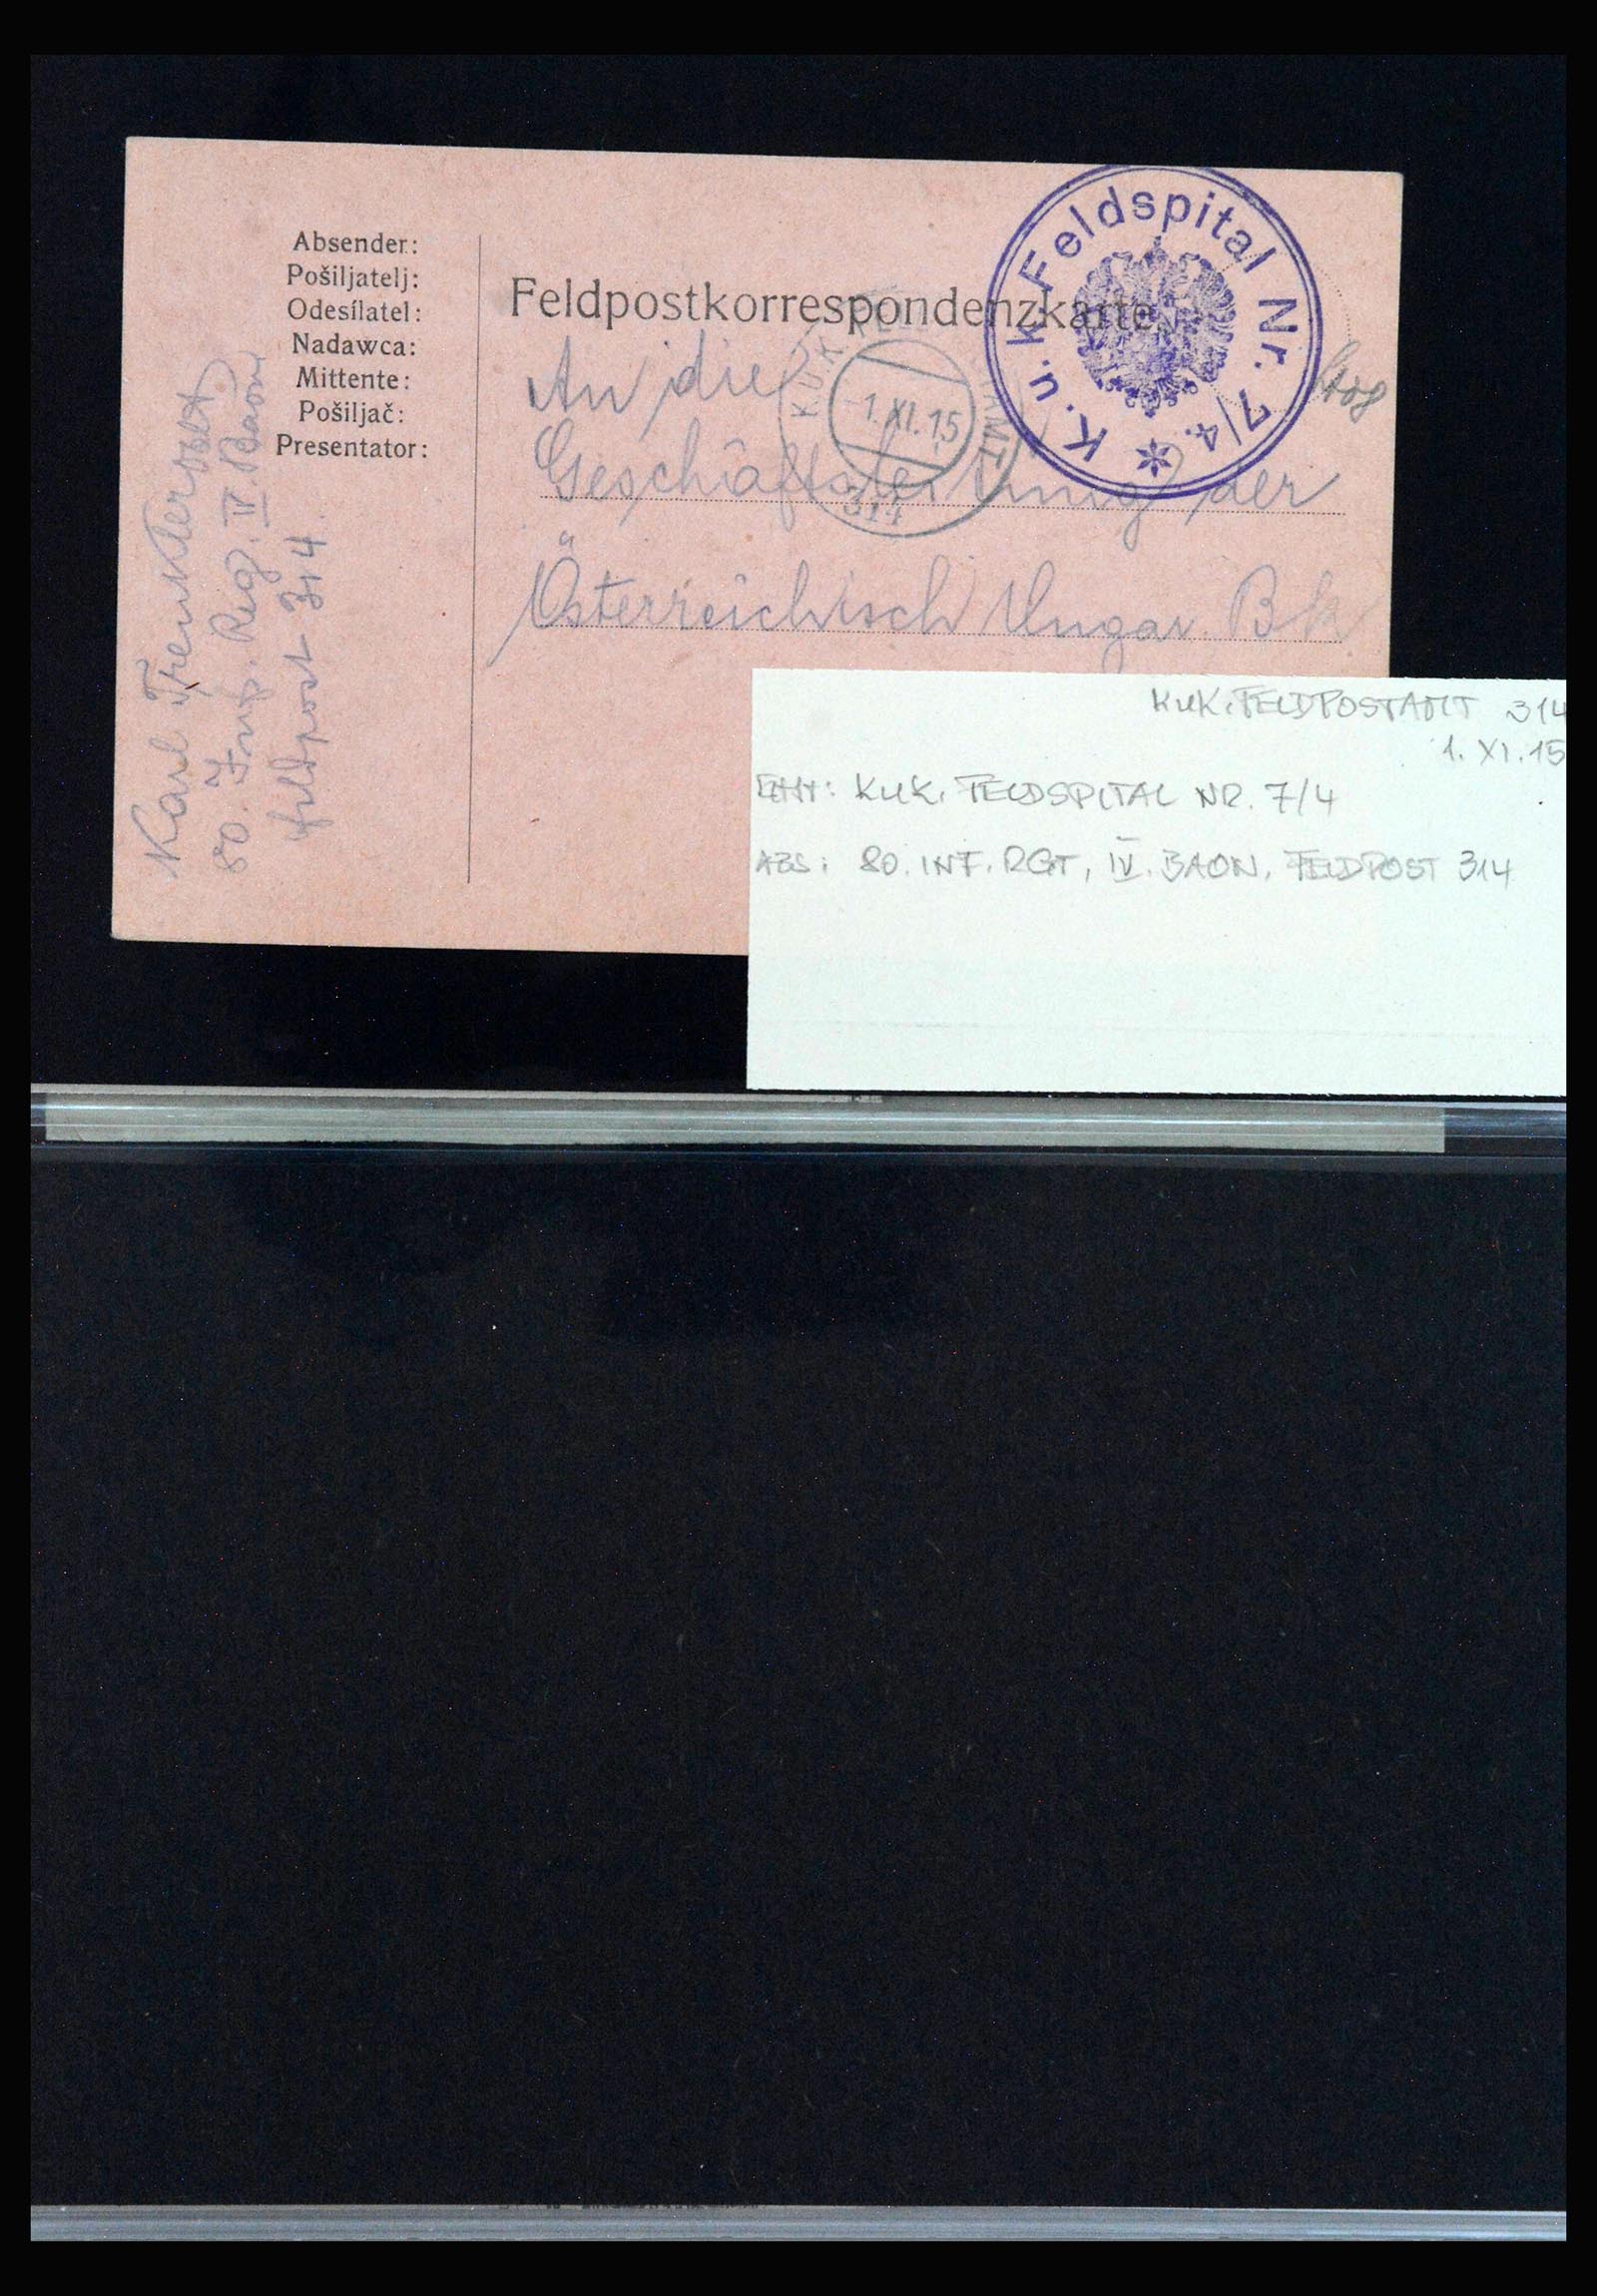 Absender:
Pošiljatelj:
Odesílatel:
Nadawca:
Mittente:
Pošiljač:
Presentator:
Karl
80. Inf. Reg. IV. Baon
Feldpost 314.
Feldpostkorrespondenzkarte
K.u.k. Feldspital Nr. 7/4.
KUK
1.XI.15
314
An die
Geschäftsleitung der
Österreichisch Ungar. Bk
KUK. FELDPOSTAMT 314
1. XI. 15
KUK. FELDSPITAL NR. 7/4
ABS: 80. INF. RGT, IV. BAON, FELDPOST 314